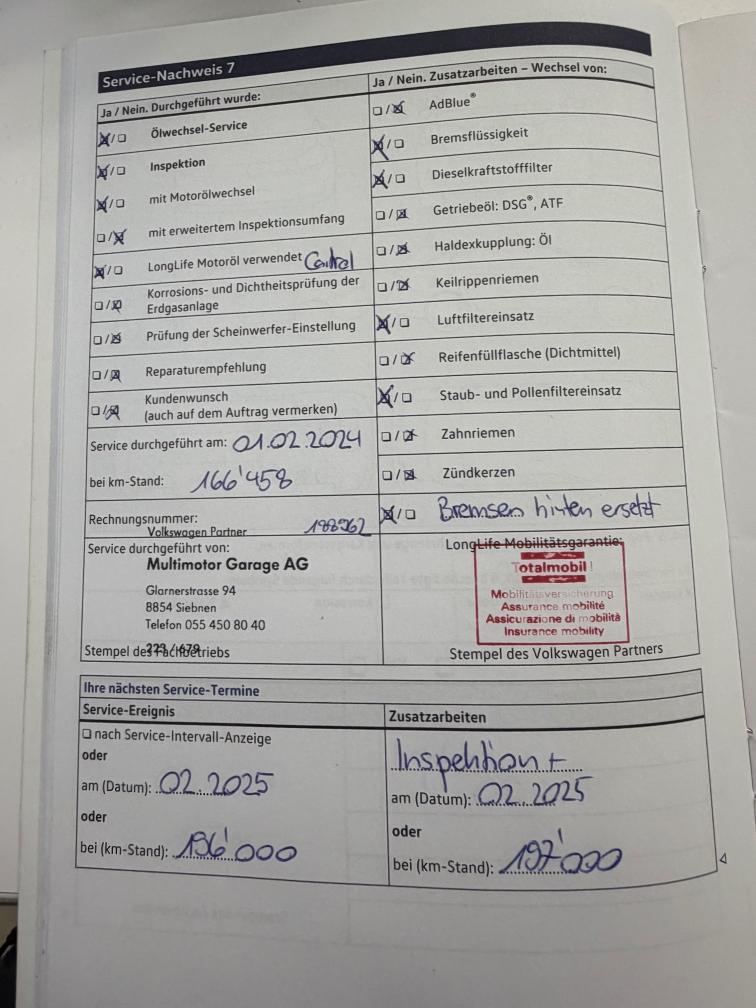 Service-Nachweis 7
Ja / Nein. Durchgeführt wurde:
☒/☐ Ölwechsel-Service
☒/☐ Inspektion
☒/☐ mit Motorölwechsel
☐/☒ mit erweitertem Inspektionsumfang
☒/☐ LongLife Motoröl verwendet
☐/☒ Korrosions- und Dichtheitsprüfung der
Erdgasanlage
☐/☒ Prüfung der Scheinwerfer-Einstellung
☐/☒ Reparaturempfehlung
☐/☒ Kundenwunsch
(auch auf dem Auftrag vermerken)
Service durchgeführt am: 01.02.2024
bei km-Stand: 166'458
Rechnungsnummer:
Volkswagen Partner
Service durchgeführt von:
Multimotor Garage AG
Glarnerstrasse 94
8854 Siebnen
Telefon 055 450 80 40
Stempel des Fachbetriebs
Ja / Nein. Zusatzarbeiten – Wechsel von:
☐/☒ AdBlue®
☒/☐ Bremsflüssigkeit
☒/☐ Dieselkraftstofffilter
☐/☒ Getriebeöl: DSG®, ATF
☐/☒ Haldexkupplung: Öl
☐/☒ Keilrippenriemen
☒/☐ Luftfiltereinsatz
☐/☒ Reifenfüllflasche (Dichtmittel)
☒/☐ Staub- und Pollenfiltereinsatz
☐/☒ Zahnriemen
☐/☒ Zündkerzen
☒/☐ Bremsen hinten ersetzt
LongLife Mobilitätsgarantie:
Totalmobil!
Mobilitätsversicherung
Assurance mobilité
Assicurazione di mobilità
Insurance mobility
Stempel des Volkswagen Partners
Ihre nächsten Service-Termine
Service-Ereignis
☐ nach Service-Intervall-Anzeige
oder
am (Datum): 02.2025
oder
bei (km-Stand): 196'000
Zusatzarbeiten
Inspektion +
am (Datum): 02.2025
oder
bei (km-Stand): 197'000